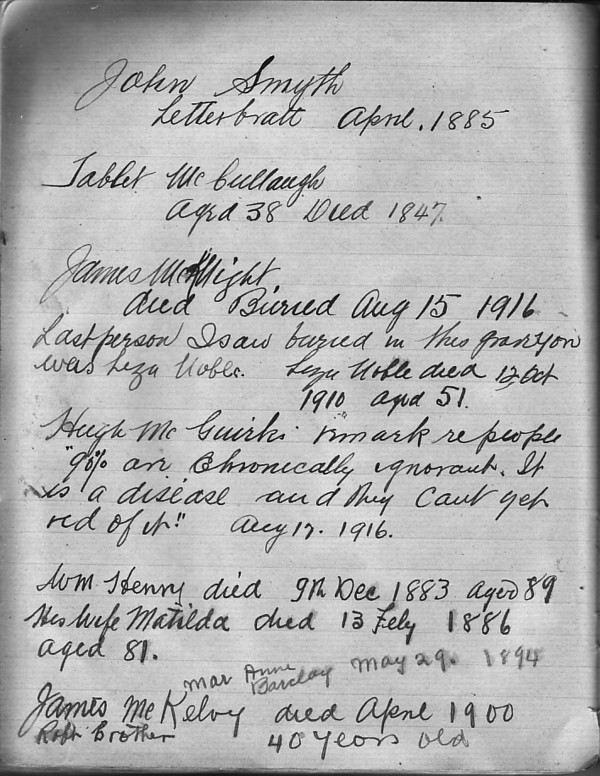 John Smyth
Letterbratt April. 1885
Tablet McCullaugh
Aged 38 Died 1847.
James McNight
died Buried Aug 15 1916
Last person I saw buried in this graveyon
was Liza Noble. Liza Noble died 12 Oct
1910 aged 51.
Hugh Mc Guirks remark re people
"90% are Chronically ignorant. It
is a disease and they Cant get
red of it." Aug 17. 1916.
Wm Henry died 9th Dec 1883 aged 89
His Wife Matilda died 13 Feby 1886
aged 81.
Mar Anne Barclay May 29. 1894
James McKelvy died April 1900
Robt Brother 40 Years old